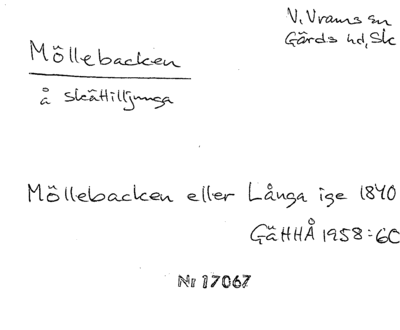 V. Vrams sn
Gärds hd, Sk
Möllebacken
å Skättilljunga
Möllebacken eller Långa ige 1840
GäHHÅ 1958:60
Nr 17067